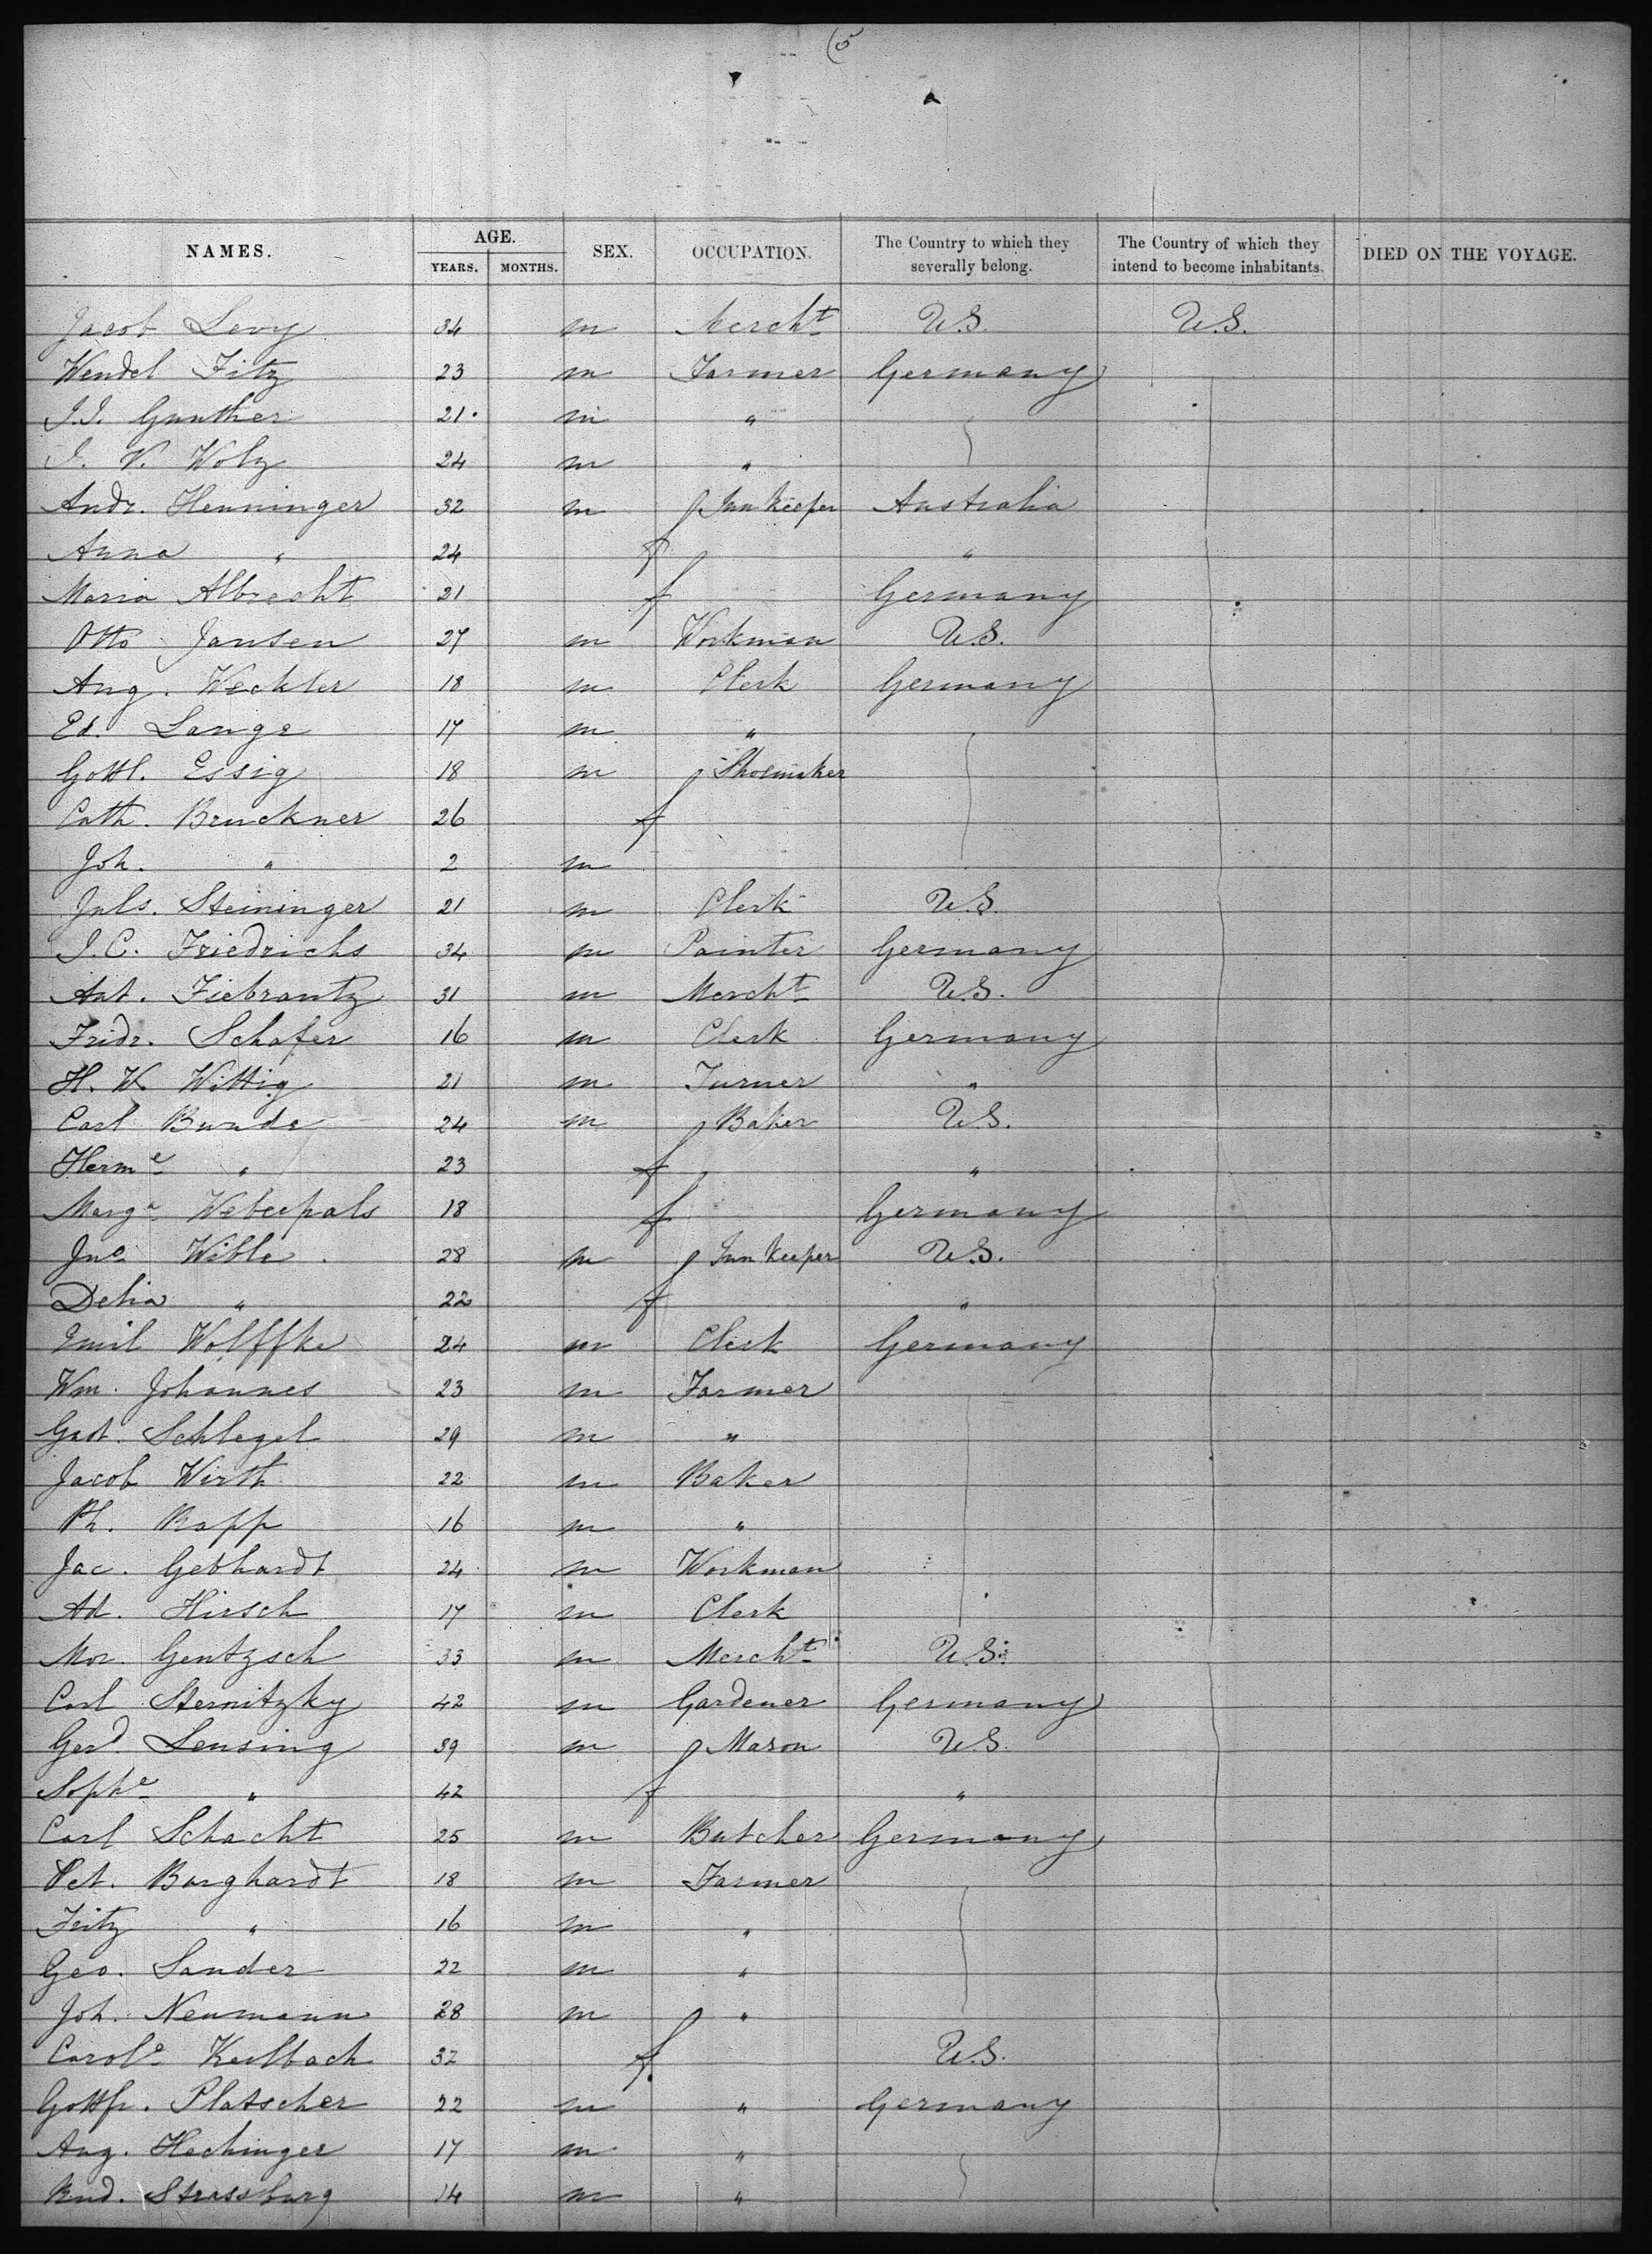 6
NAMES. AGE. SEX. OCCUPATION. The Country to which they severally belong. The Country of which they intend to become inhabitants. DIED ON THE VOYAGE.
YEARS. MONTHS.
Jacob Levy 34 m Mercht U.S. U.S.
Wendel Fitz 23 m Farmer Germany
J.J. Gunther 21 m "
J. V. Wolz 24 m "
Andr. Henninger 32 m Inn Keeper Australia
Anna " 24 f "
Maria Albrecht 21 f Germany
Otto Jansen 27 m Workman U.S.
Aug. Weckler 18 m Clerk Germany
Ed. Lange 17 m "
Gottl. Essig 18 m Shoemaker
Cath. Bruckner 26 f
Joh. " 2 m
Juls. Steininger 21 m Clerk U.S.
J.C. Friedrichs 34 m Painter Germany
Ant. Fiebrantz 31 m Mercht U.S.
Fridr. Schafer 16 m Clerk Germany
H. W. Wittig 21 m Turner "
Carl Bunde 24 m Baker U.S.
Herme " 23 f "
Marga 18 f Germany
Jno Wible 28 m Inn Keeper U.S.
Delia " 22 f "
Emil Wolffke 24 m Clerk Germany
Wm. Johannes 23 m Farmer
Gust. Schlegel 29 m "
Jacob Wirth 22 m Baker
Ph. Rapp 16 m "
Jac. Gebhardt 24 m Workman
Ad. Hirsch 17 m Clerk
Mor. Gentzsch 33 m Mercht U.S.
Carl Sternitzky 42 m Gardener Germany
Gerd. Lensing 39 m Mason U.S.
Sophe " 42 f "
Carl Schacht 25 m Butcher Germany
Pet. Burghardt 18 m Farmer
Fritz " 16 m "
Geo. Sander 22 m "
Joh. Neumann 28 m "
Carole Keilbach 32 f U.S.
Gottfr. Platscher 22 m " Germany
Aug. Hechinger 17 m "
Rud. Strassburg 14 m "